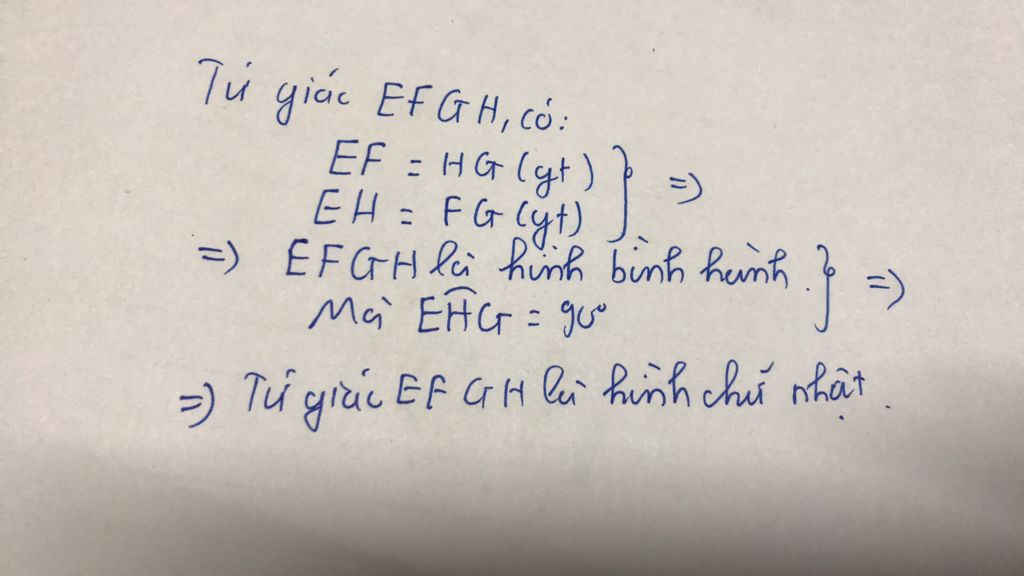 Tứ giác EFGH, có:
EF = HG (gt) } =>
EH = FG (gt)
=> EFGH là hình bình hành. } =>
Mà EĤG = 90°
=> Tứ giác EFGH là hình chữ nhật.